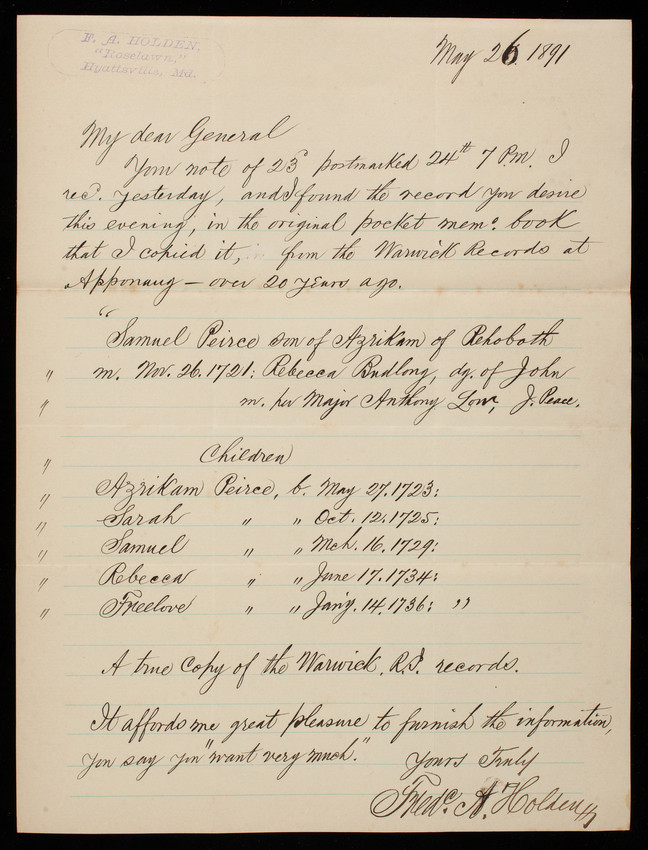 F. A. HOLDEN,
"Roselawn,"
Hyattsville, Md.
May 26 1891
My dear General
Your note of 23d postmarked 24th 7 Pm. I
rec. yesterday, and I found the record you desire
this evening, in the original pocket memo. book
that I copied it, from the Warwick Records at
Apponaug — over 20 years ago.
"Samuel Peirce son of Azrikam of Rehoboth
" m. Nov. 26. 1721: Rebecca Budlong, dg. of John
" m. per Major Anthony Low, J. Peace.
" Children
" Azrikam Peirce, b. May 27. 1723:
" Sarah " " Oct. 12. 1725:
" Samuel " " Mch. 16. 1729:
" Rebecca " " June 17. 1734:
" Freelove " " Jany. 14. 1736: "
A true copy of the Warwick, R.I. records.
It affords me great pleasure to furnish the information,
you say you "want very much."
Yours Truly
Fredc. A. Holden